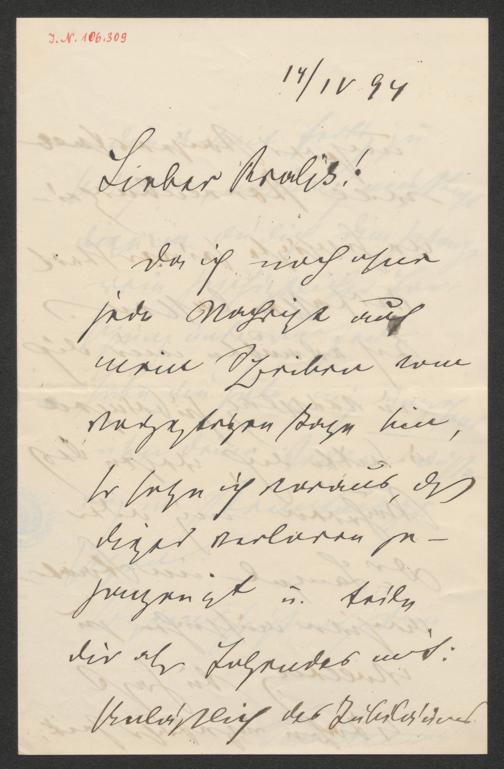 I.N. 106.309
14/IV 94
Lieber Kralik!
Da ich noch ohne
jede Nachricht auf
mein Schreiben vom
vorgestrigen Tage bin,
so setze ich voraus, daß
dieses verloren ge-
gangen ist u. teile
dir also Folgendes mit:
Anläßlich des Jubiläums